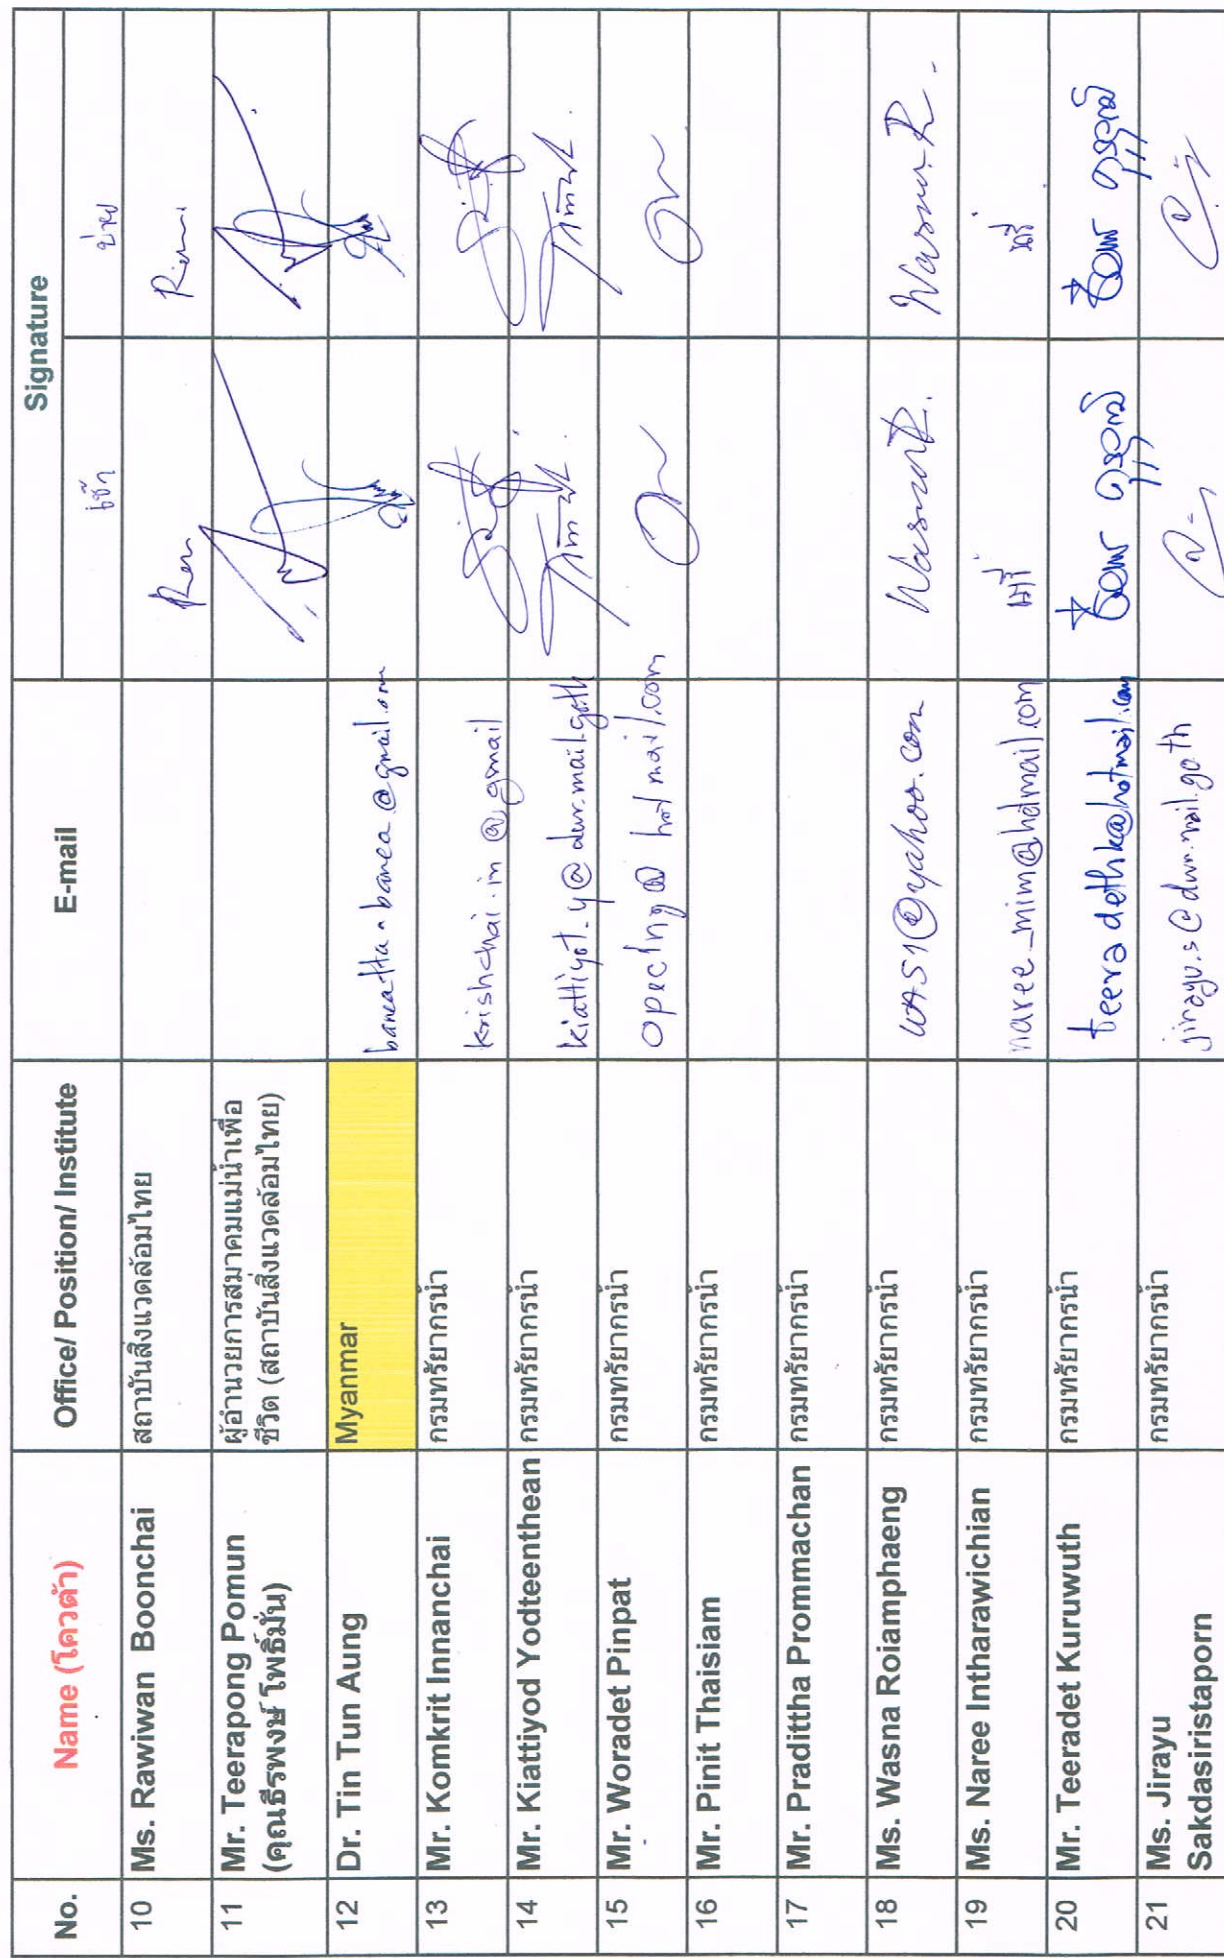 No. Name (โควต้า) Office/ Position/ Institute E-mail Signature
เช้า บ่าย
10 Ms. Rawiwan Boonchai สถาบันสิ่งแวดล้อมไทย
11 Mr. Teerapong Pomun ผู้อำนวยการสมาคมแม่น้ำเพื่อ
(คุณธีรพงษ์ โพธิ์มั่น) ชีวิต (สถาบันสิ่งแวดล้อมไทย)
12 Dr. Tin Tun Aung Myanmar @gmail.com
13 Mr. Komkrit Innanchai กรมทรัยากรน้ำ krishchai.in @ gmail
14 Mr. Kiattiyod Yodteenthean กรมทรัยากรน้ำ kiattiyot_y@dwr.mail.go.th
15 Mr. Woradet Pinpat กรมทรัยากรน้ำ opecing@ hotmail.com
16 Mr. Pinit Thaisiam กรมทรัยากรน้ำ
17 Mr. Pradittha Prommachan กรมทรัยากรน้ำ
18 Ms. Wasna Roiamphaeng กรมทรัยากรน้ำ WAS1@yahoo.com Wasna R. Wasna R.
19 Ms. Naree Intharawichian กรมทรัยากรน้ำ naree_mim@hotmail.com นรี นรี
20 Mr. Teeradet Kuruwuth กรมทรัยากรน้ำ teeradethk@hotmail.com
21 Ms. Jirayu กรมทรัยากรน้ำ jirayu.s@dwr.mail.go.th
Sakdasiristaporn